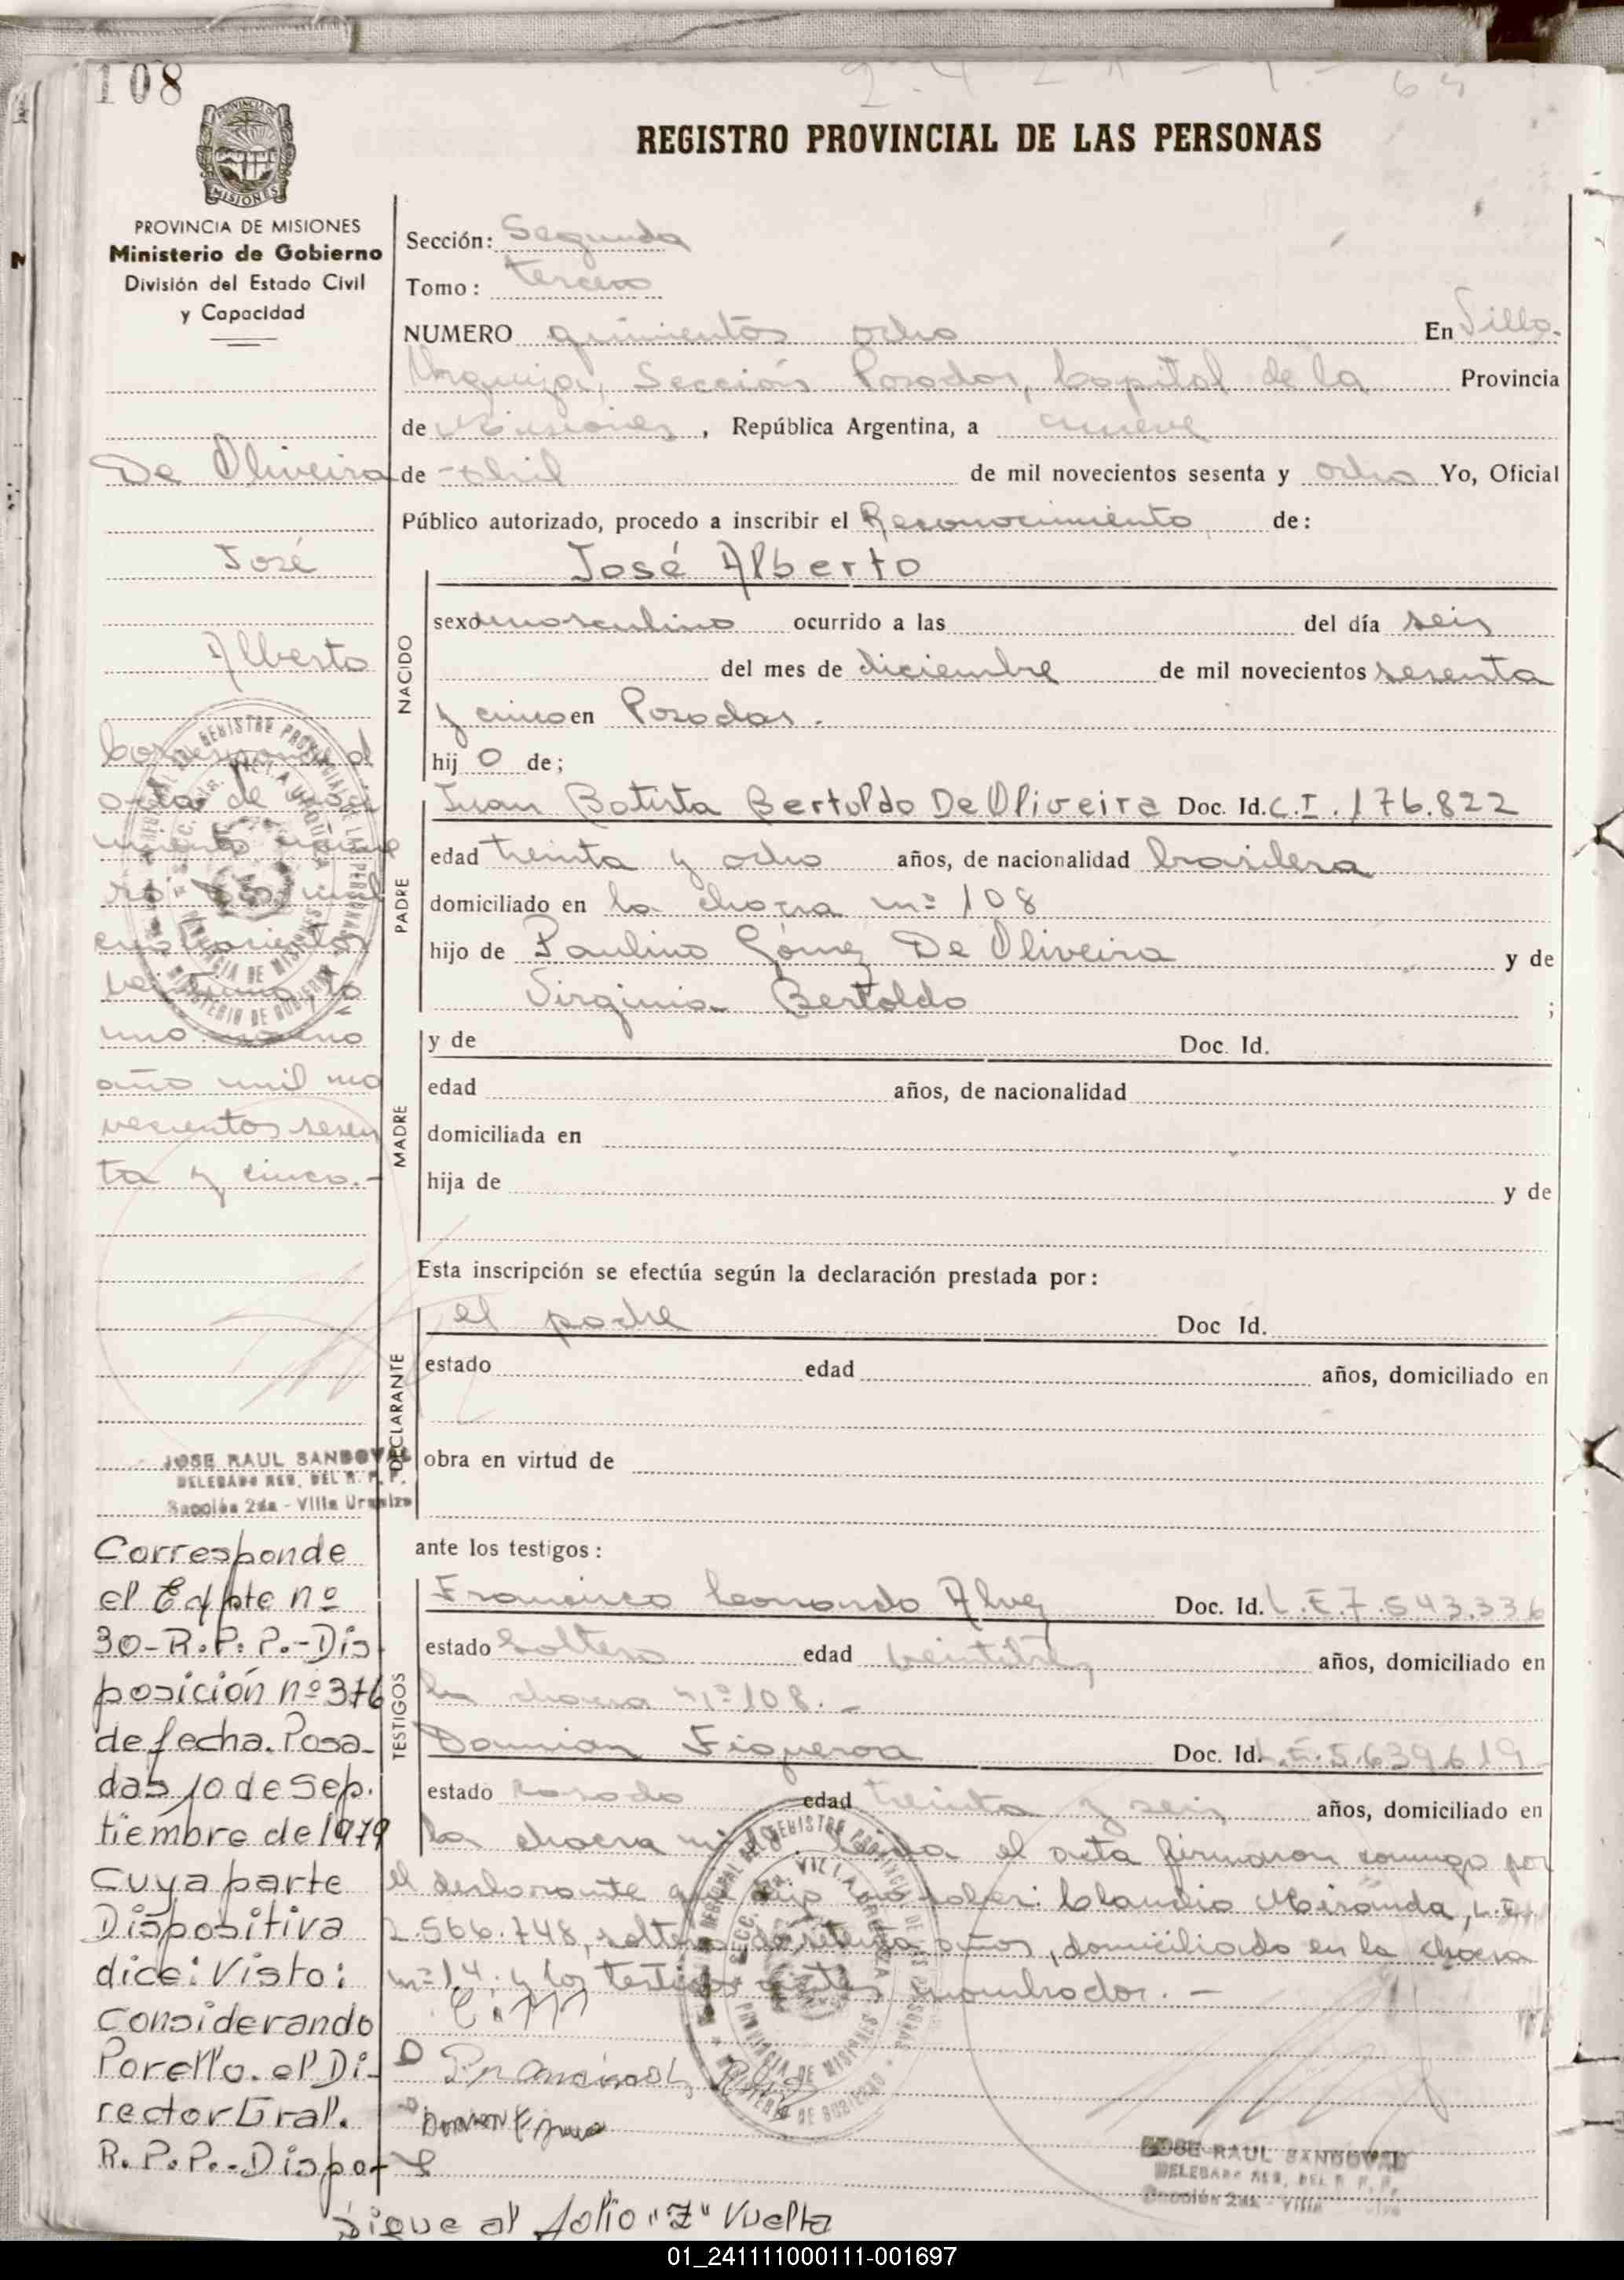 108
REGISTRO PROVINCIAL DE LAS PERSONAS
PROVINCIA DE MISIONES
Ministerio de Gobierno
División del Estado Civil
y Capacidad
Sección: Segunda
Tomo: tercero
NUMERO quinientos ocho En Villa
Urquiza, Sección Posadas, Capital de la Provincia
de Misiones, República Argentina, a nueve
de abril de mil novecientos sesenta y ocho Yo, Oficial
Público autorizado, procedo a inscribir el Reconocimiento de:
De Oliveira
José
Alberto
NACIDO
José Alberto
sexo masculino ocurrido a las del día seis
del mes de diciembre de mil novecientos sesenta
y cinco en Posadas.
hijo de;
PADRE
Juan Batista Bertoldo De Oliveira Doc. Id. C.I. 176.822
edad treinta y ocho años, de nacionalidad brasilera
domiciliado en la chacra nº 108
hijo de Paulino Gómez De Oliveira y de
Virginia Bertoldo ;
MADRE
y de Doc. Id.
edad años, de nacionalidad
domiciliada en
hija de y de
Corresponde al
acta de naci
miento núme
ro dos mil
cuatrocientos
veintiuno, to
uno
año mil no
vecientos sesen
ta y cinco.-
Esta inscripción se efectúa según la declaración prestada por:
DECLARANTE
el padre Doc Id.
estado edad años, domiciliado en
obra en virtud de
JOSE RAUL SANDOVAL
DELEGADO REG. DEL R. P. P.
Sección 2da - Villa Urquiza
ante los testigos:
TESTIGOS
Francisco Leonardo Alvez Doc. Id. L.E.7.543.336
estado soltero edad veintitrés años, domiciliado en
la chacra nº 108.-
Damian Figueroa Doc. Id. L.E.5.639.619
estado casado edad treinta y seis años, domiciliado en
la chacra leída el acta firmaron conmigo por
el declarante que dijo no saber: Claudio Miranda, L.E.
2.566.748, soltero, de setenta años, domiciliado en la chacra
nº 14 y los testigos antes nombrados.-
C.M
Francisco L. Alvez
JOSE RAUL SANDOVAL
DELEGADO REG. DEL R. P. P.
Sección 2da - Villa
Corresponde
el Edpte nº
30-R.P.P.-Dis
posición nº 376
de fecha. Posa
das 10 de Sep.
tiembre de 1979
Cuya parte
Dispositiva
dice: Visto:
Considerando
Por ello. el Di-
rector Gral.
R.P.P.-Dispo-
Sigue al folio "Z" Vuelta
01_241111000111-001697